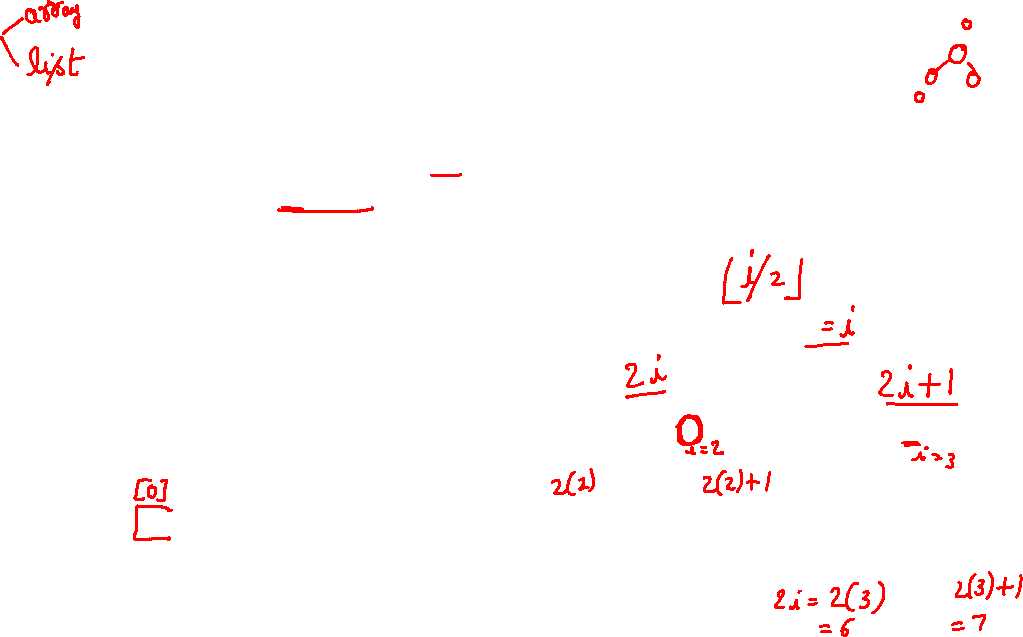 array
list
⌊i/2⌋
= i
2i
2i+1
i=2
i=3
2(2)
2(2)+1
[0]
2i = 2(3)
= 6
2(3)+1
= 7